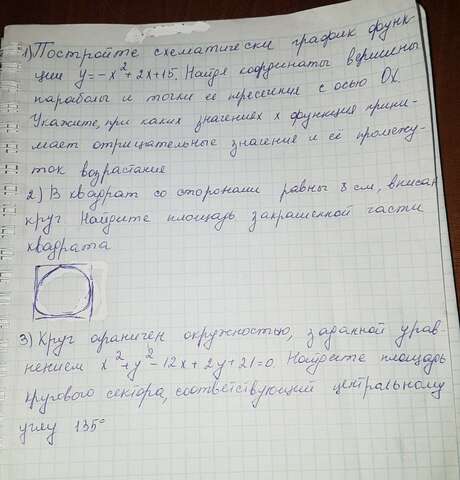 1) Постройте схематически график функ-
ции y=-x²+2x+15. Найдя координаты вершины
параболы и точки ее пересечения с осью OX.
Укажите, при каких значениях x функция прини-
мает отрицательные значение и её промежу-
ток возрастание
2) В квадрат со сторонами равны 8 см, вписан
круг Найдите площадь закрашенной части
квадрата
3) Круг ограничен окружностью, заданной урав
нением x²+y²-12x+2y+21=0. Найдите площадь
кругового сектора, соответствующий центральному
углу 135°